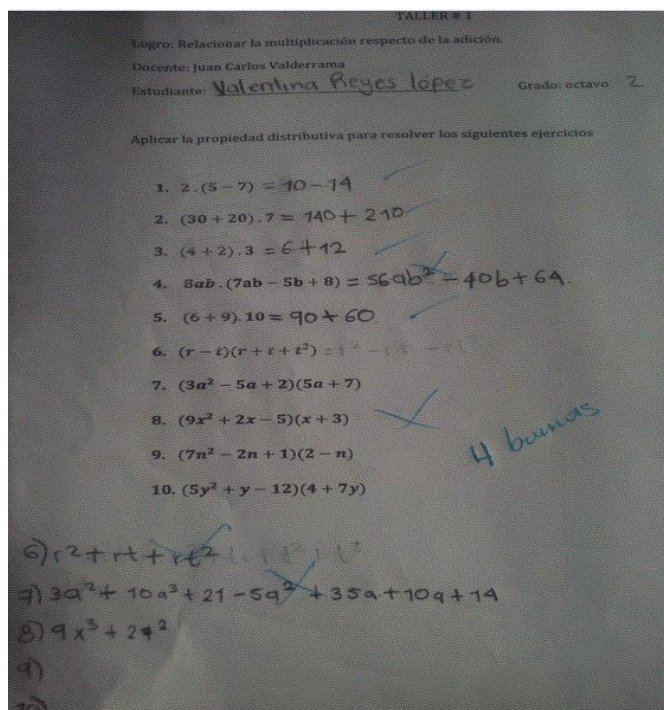 TALLER # 1
Logro: Relacionar la multiplicación respecto de la adición.
Docente: Juan Carlos Valderrama
Estudiante: Valentina Reyes lópez Grado: octavo 2
Aplicar la propiedad distributiva para resolver los siguientes ejercicios
1. 2.(5 − 7) = 10 − 14
2. (30 + 20).7 = 140 + 210
3. (4 + 2).3 = 6 + 12
4. 8ab.(7ab − 5b + 8) = 56ab² − 40b + 64.
5. (6 + 9).10 = 90 + 60
6. (r − t)(r + t + t²)
7. (3a² − 5a + 2)(5a + 7)
8. (9x² + 2x − 5)(x + 3)
9. (7n² − 2n + 1)(2 − n)
4 buenas
10. (5y² + y − 12)(4 + 7y)
6) r2 + rt + rt²
7) 3a² + 10a³ + 21 − 5a² + 35a + 10a + 14
8) 9x³ + 2
9)
10)